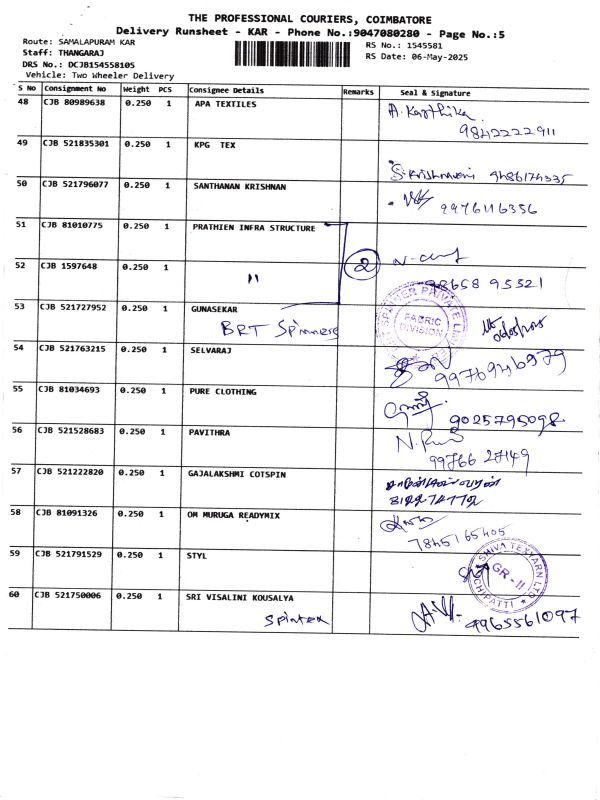 THE PROFESSIONAL COURIERS, COIMBATORE
Delivery Runsheet - KAR - Phone No.:9047080280 - Page No.:5
Route: SAMALAPURAM KAR
RS No.: 1545581
Staff: THANGARAJ
RS Date: 06-May-2025
DRS No.: DCJB154558105
Vehicle: Two Wheeler Delivery
S No Consignment No Weight PCS Consignee Details Remarks Seal & Signature
48 CJB 80989638 0.250 1 APA TEXTILES A. Karthika
9842222911
49 CJB 521835301 0.250 1 KPG TEX
S. Krishnaveni 9486174335
50 CJB 521796077 0.250 1 SANTHANAN KRISHNAN
9976116356
51 CJB 81010775 0.250 1 PRATHIEN INFRA STRUCTURE
52 CJB 1597648 0.250 1 " 2
98658 95321
53 CJB 521727952 0.250 1 GUNASEKAR
BRT Spinners
FABRIC DIVISION
54 CJB 521763215 0.250 1 SELVARAJ
9976946979
55 CJB 81034693 0.250 1 PURE CLOTHING
9025795098
56 CJB 521528683 0.250 1 PAVITHRA
99766 27149
57 CJB 521222820 0.250 1 GAJALAKSHMI COTSPIN
58 CJB 81091326 0.250 1 OM MURUGA READYMIX
7845165405
59 CJB 521791529 0.250 1 STYL
SHIVA TEXYARN LTD
GR-II
60 CJB 521750006 0.250 1 SRI VISALINI KOUSALYA
Spintex
9965561097